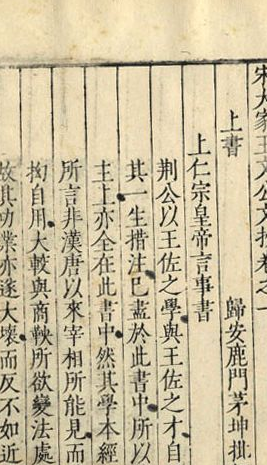 宋大家王文公文抄卷之一
歸安鹿門茅坤批
上書
上仁宗皇帝言事書
荆公以王佐之學與王佐之才自
其一生措注已盡於此書中所以
主上亦全在此書中然其學本經
所言非漢唐以來宰相所能見而
拘自用大較與商鞅所欲變法處
故其功業亦遂大壞而反不如近